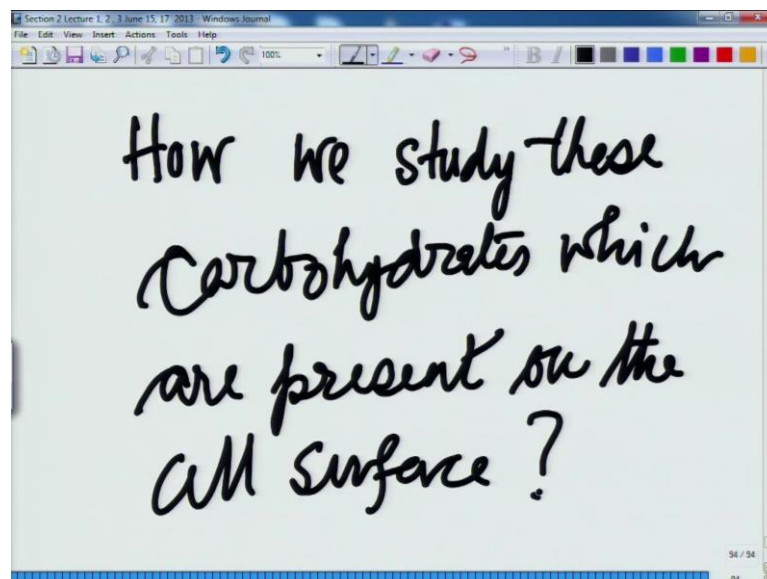 Section 2 Lecture 1, 2 , 3 June 15, 17 2013 - Windows Journal
File Edit View Insert Actions Tools Help
100%
B I
How we study these
carbohydrates which
are present on the
cell surface ?
94 / 94